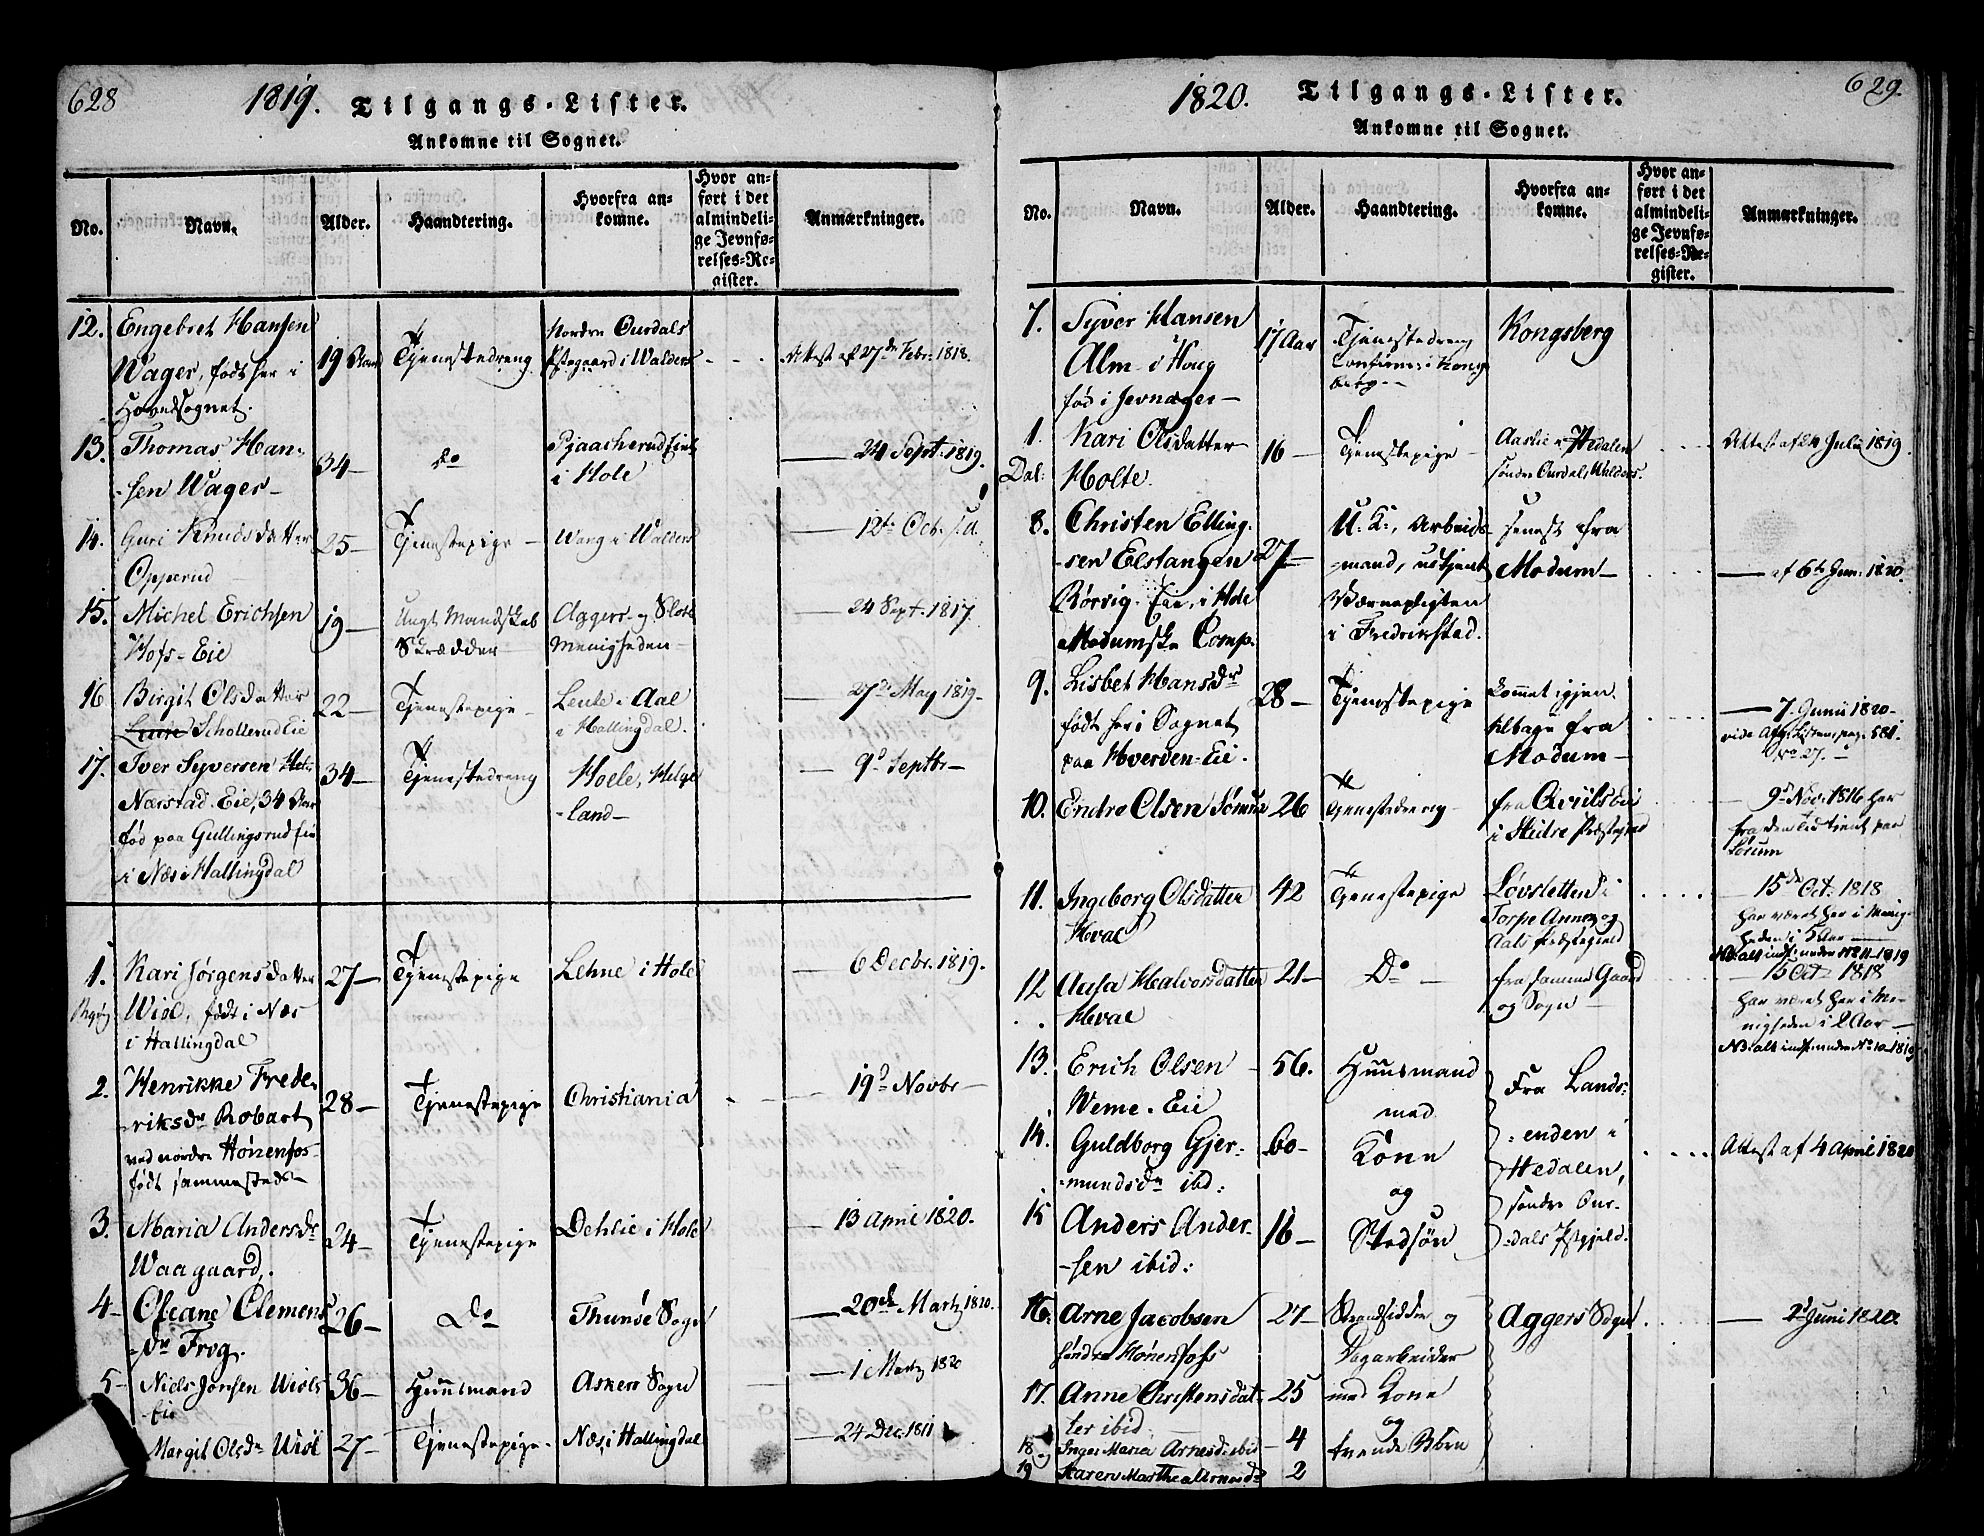 628
1819.
Tilgangs-Lister.
Ankomne til Sognet.
No.
Navn.
Alder.
Haandtering.
Hvorfra an-
komne.
Hvor an-
ført i det
almindeli-
ge Jevnfø-
relses-Re-
gister.
Anmærkninger.
12. Engebret Hansen
Wager, født her i
Hovedsognet.
19 Aar
Tjenestedreng
Nordre Ourdals
Pstegaard i Walders
Attest af 27de Febr: 1818.
13. Thomas Han-
sen Wager
34
Do
i Hole
24 Sept: 1819.
14. Guri Knudsdatter
Opperud
25
Tjenestepige
Wang i Walders
12te Oct.
15. Michel Erichsen
Hofs-Eie
19
Ungt Mandskab
Skrædder
Aggers og Slots
Menigheden
24 Sept. 1817.
16 Birgit Olsdatter
Schollerud Eie
22
Tjenestepige
Leute i Aal
i Hallingdal.
27de May 1819
17. Iver Syversen
Nærstad-Eie, 34 Aar
fød paa Gullingsrud Eie
i Næs i Hallingdal
34
Tjenestedreng
Hoele, Helge
land
9de Septbr
1. Kari Jørgensdatter
Wiol, født i Næs
i Hallingdal
27
Tjenestepige
Lehne i Hole
6 Decbr. 1819.
2. Henrikke Frede-
riksdr Robart
ved nordre Hønenfos
født sammesteds
28
Tjenestepige
Christiania
19de Novbr
3. Maria Andersdr
Waagaard.
24
Tjenestepige
Dehlie i Hole
13 April 1820.
4 Oleane Clemens
dr Frog.
26
Do
Thunsø Sogn
20de Marts 1820.
5 Niels Jonsen Wiols
Eie
36
Huusmand
Askers Sogn
1 Marts 1820
Margit Olsdr Wiol
27
Tjenestepige
Næs i Hallingdal
24 Dec. 1811
629.
1820.
Tilgangs-Lister.
Ankomne til Sognet.
No.
Navn.
Alder.
Haandtering.
Hvorfra an-
komne.
Hvor an-
ført i det
almindeli-
ge Jevnfø-
relses-Re-
gister.
Anmærkninger.
7. Syver Hansen
Alm i Houg
fød i Jevnager
17 Aar
Tjenestedreng
Confirm: i Kongs
berg
Kongsberg
1. Kari Olsdatter
Dal: Holte.
16
Tjenestepige
Aaslie i Hedalen
søndre Ourdal Walders.
Attest af 4 Julii 1819
8. Christen Elling-
sen Elstangen
Rørvig-Eie, i Hole
Modumske Comp.
27
U. K., Arbeids-
mand, udtjent
Værnepligten
i Fredrikstad.
senest fra
Modum
af 6te Jan: 1820.
9. Lisbet Hansdr
født her i Sognet
paa Hverven-Eie.
28
Tjenestepige
kommet igjen
tilbage fra
Modum
7. Junii 1820
vide Afg. Listen, pag. 581.
No 27.
10. Endre Olsen Sørum
26
Tjenestedreng
fra
i Præstegield
9de Nov. 1816 har
fra den Tid tient paa
Sørum
11. Ingeborg Olsdatter
Hval
42
Tjenestepige
Løvsletten i
Torpe Annex og
Aals Præstegield
15de Oct. 1818
har været her i Menig-
heden i 5 Aar
NB. alt indf. under No 11 1819
12 Aasa Halvorsdatter
Hval
21
Do
fra samme Gaard
og Sogn
15 Oct 1818
har været her i Me-
nigheden i 2 Aar
NB. alt indf. under No 10 1819
13. Erich Olsen
Weme-Eie
56.
Huusmand
med
Fra Lands-
enden i
Hedalen,
søndre Our-
dals Pstgjeld.
14. Guldborg Gjer-
mundsdr ibid:
60
Kone
og
Attest af 4 April 1820
15 Anders Ander-
sen ibid:
16
Stedsøn
16. Arne Jacobsen
søndre Hønenfoss
27
Strandsidder og
Dagarbeider
Aggers Sogn
2de Juni 1820.
17. Anne Christensdat-
ter ibid.
25
med Kone
og
18 Inger Maria Arnesdr ibid
4
tvende Børn
19 Karen Marthea Arnesdr
2